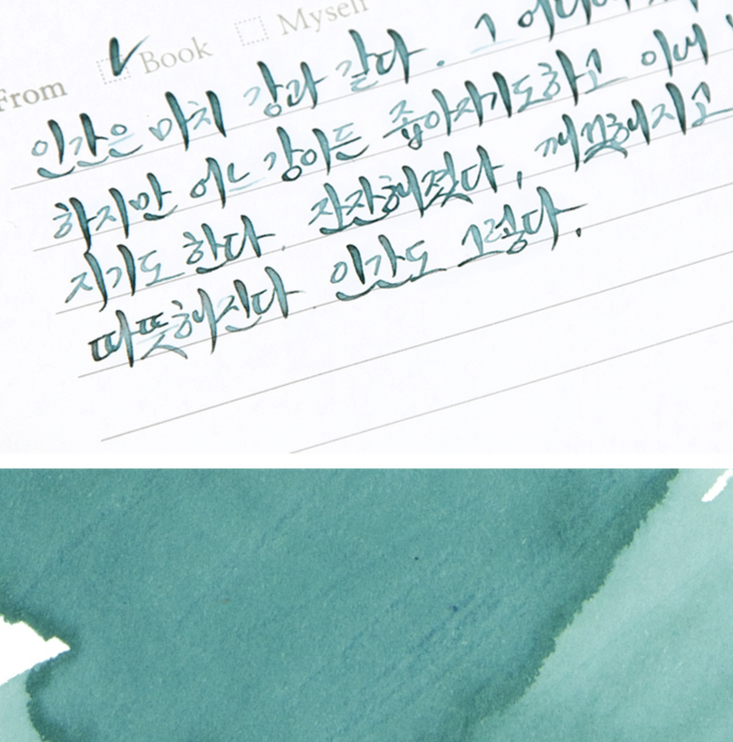 From Book Myself
인간은 마치 강과 같다. 그
하지만 어느 강이든 좁아지기도하고
지기도 한다. 잔잔해졌다,
따뜻해진다. 인간도 그렇다.